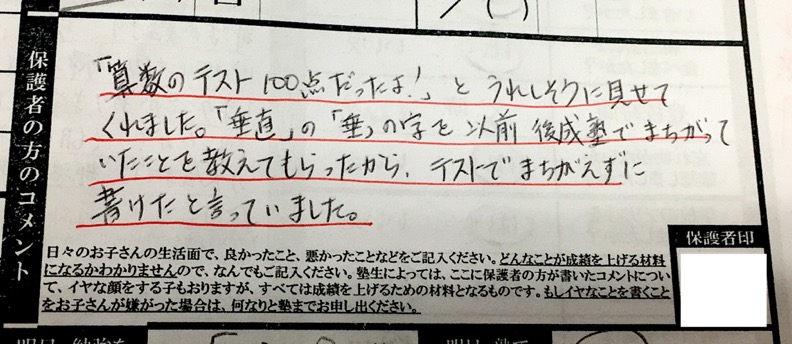 保護者の方のコメント
「算数のテスト100点だったよ!」と うれしそうに見せて
くれました。「垂直」の「垂」の字を以前 後成塾でまちがって
いたことを教えてもらったから、テストでまちがえずに
書けたと言っていました。
日々のお子さんの生活面で、良かったこと、悪かったことなどをご記入ください。どんなことが成績を上げる材料
になるかわかりませんので、なんでもご記入ください。塾生によっては、ここに保護者の方が書いたコメントについ
て、イヤな顔をする子もおりますが、すべては成績を上げるための材料となるものです。もしイヤなことを書くこと
をお子さんが嫌がった場合は、何なりと塾までお申し出ください。
保護者印